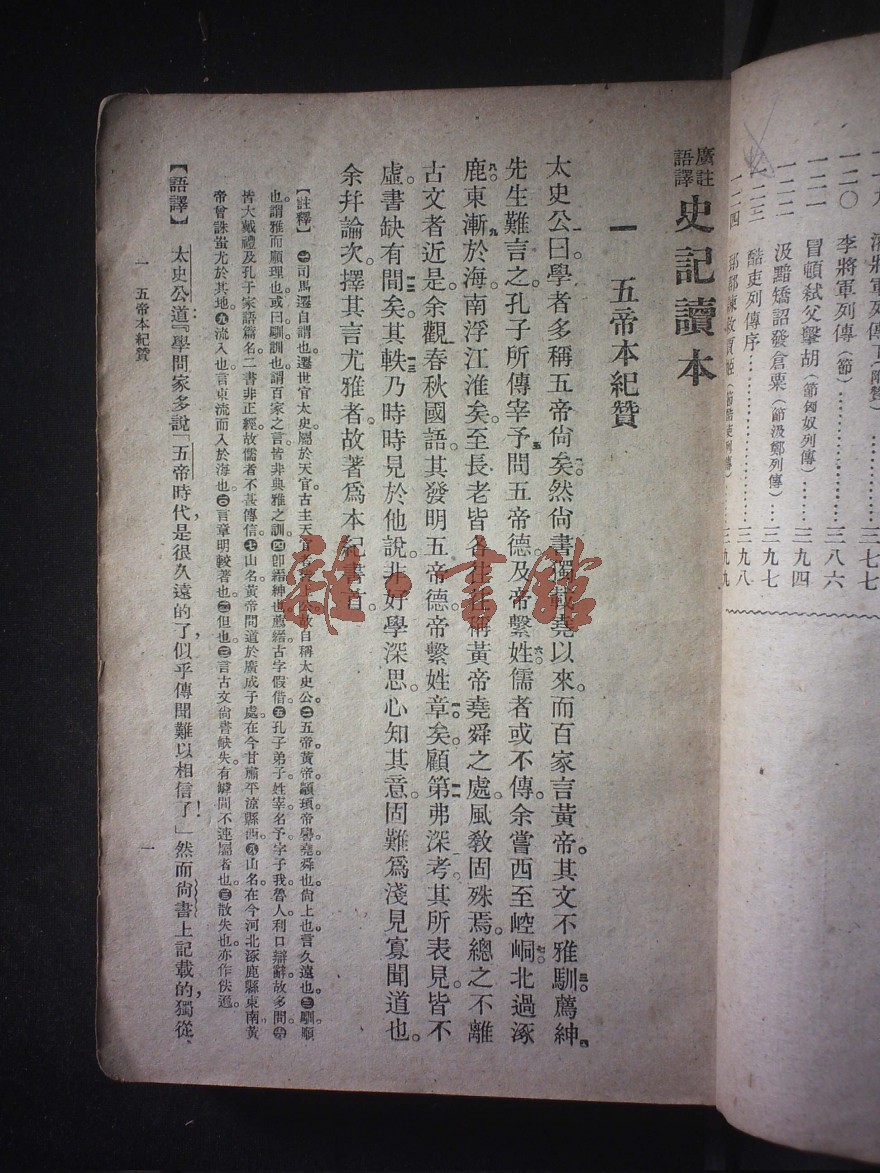 一二〇 李將軍列傳（節）……三八六
一二一 冒頓弒父擊胡（節匈奴列傳）……三九四
一二二 汲黯矯詔發倉粟（節汲鄭列傳）……三九七
一二三 酷吏列傳序……三九八
一二四
三九九
廣註
語譯
史記讀本
一 五帝本紀贊
太史公曰。學者多稱五帝尙矣。然尙書獨載堯以來。而百家言黃帝。其文不雅馴。薦紳
先生難言之。孔子所傳宰予問五帝德。及帝繫姓。儒者或不傳。余嘗西至崆峒。北過涿
鹿。東漸於海。南浮江淮矣。至長老皆各往往稱黃帝堯舜之處。風敎固殊焉。總之不離
古文者近是。余觀春秋國語。其發明五帝德。帝繫姓章矣。顧第弗深考。其所表見。皆不
虛。書缺有間矣。其軼乃時時見於他說。非好學深思。心知其意。固難爲淺見寡聞道也。
余幷論次。擇其言尤雅者。故著爲本紀書首。
【註釋】㊀司馬遷自謂也。遷世官太史。屬於天官。古主天官者上公。故自稱太史公。㊁五帝。黃帝。顓頊。帝嚳。堯。舜也。尙。上也。言久遠也。㊂馴。順
也。謂雅而順理也。或曰。馴。訓也。謂百家之言。皆非典雅之訓。㊃卽縉紳也。薦。縉。古字假借。㊄孔子弟子。姓宰。名予。字子我。魯人。利口辯辭。故多問。㊅
皆大戴禮及孔子家語篇名。二書非正經。故儒者不甚傳信。㊆山名。黃帝問道於廣成子處。在今甘肅平涼縣西。㊇山名。在今河北涿鹿縣東南。黃
帝曾誅蚩尤於其地。㊈流入也。言東流而入於海也。㊉言章明較著也。㊁但也。㊂言古文尙書缺失。有罅間不連屬者也。㊂散失也。亦作佚逸。
【語譯】 太史公道：『學問家多說「五帝時代是很久遠的了，似乎傳聞難以相信了！」然而尙書上記載的，獨從
一 五帝本紀贊 一
雜·書館